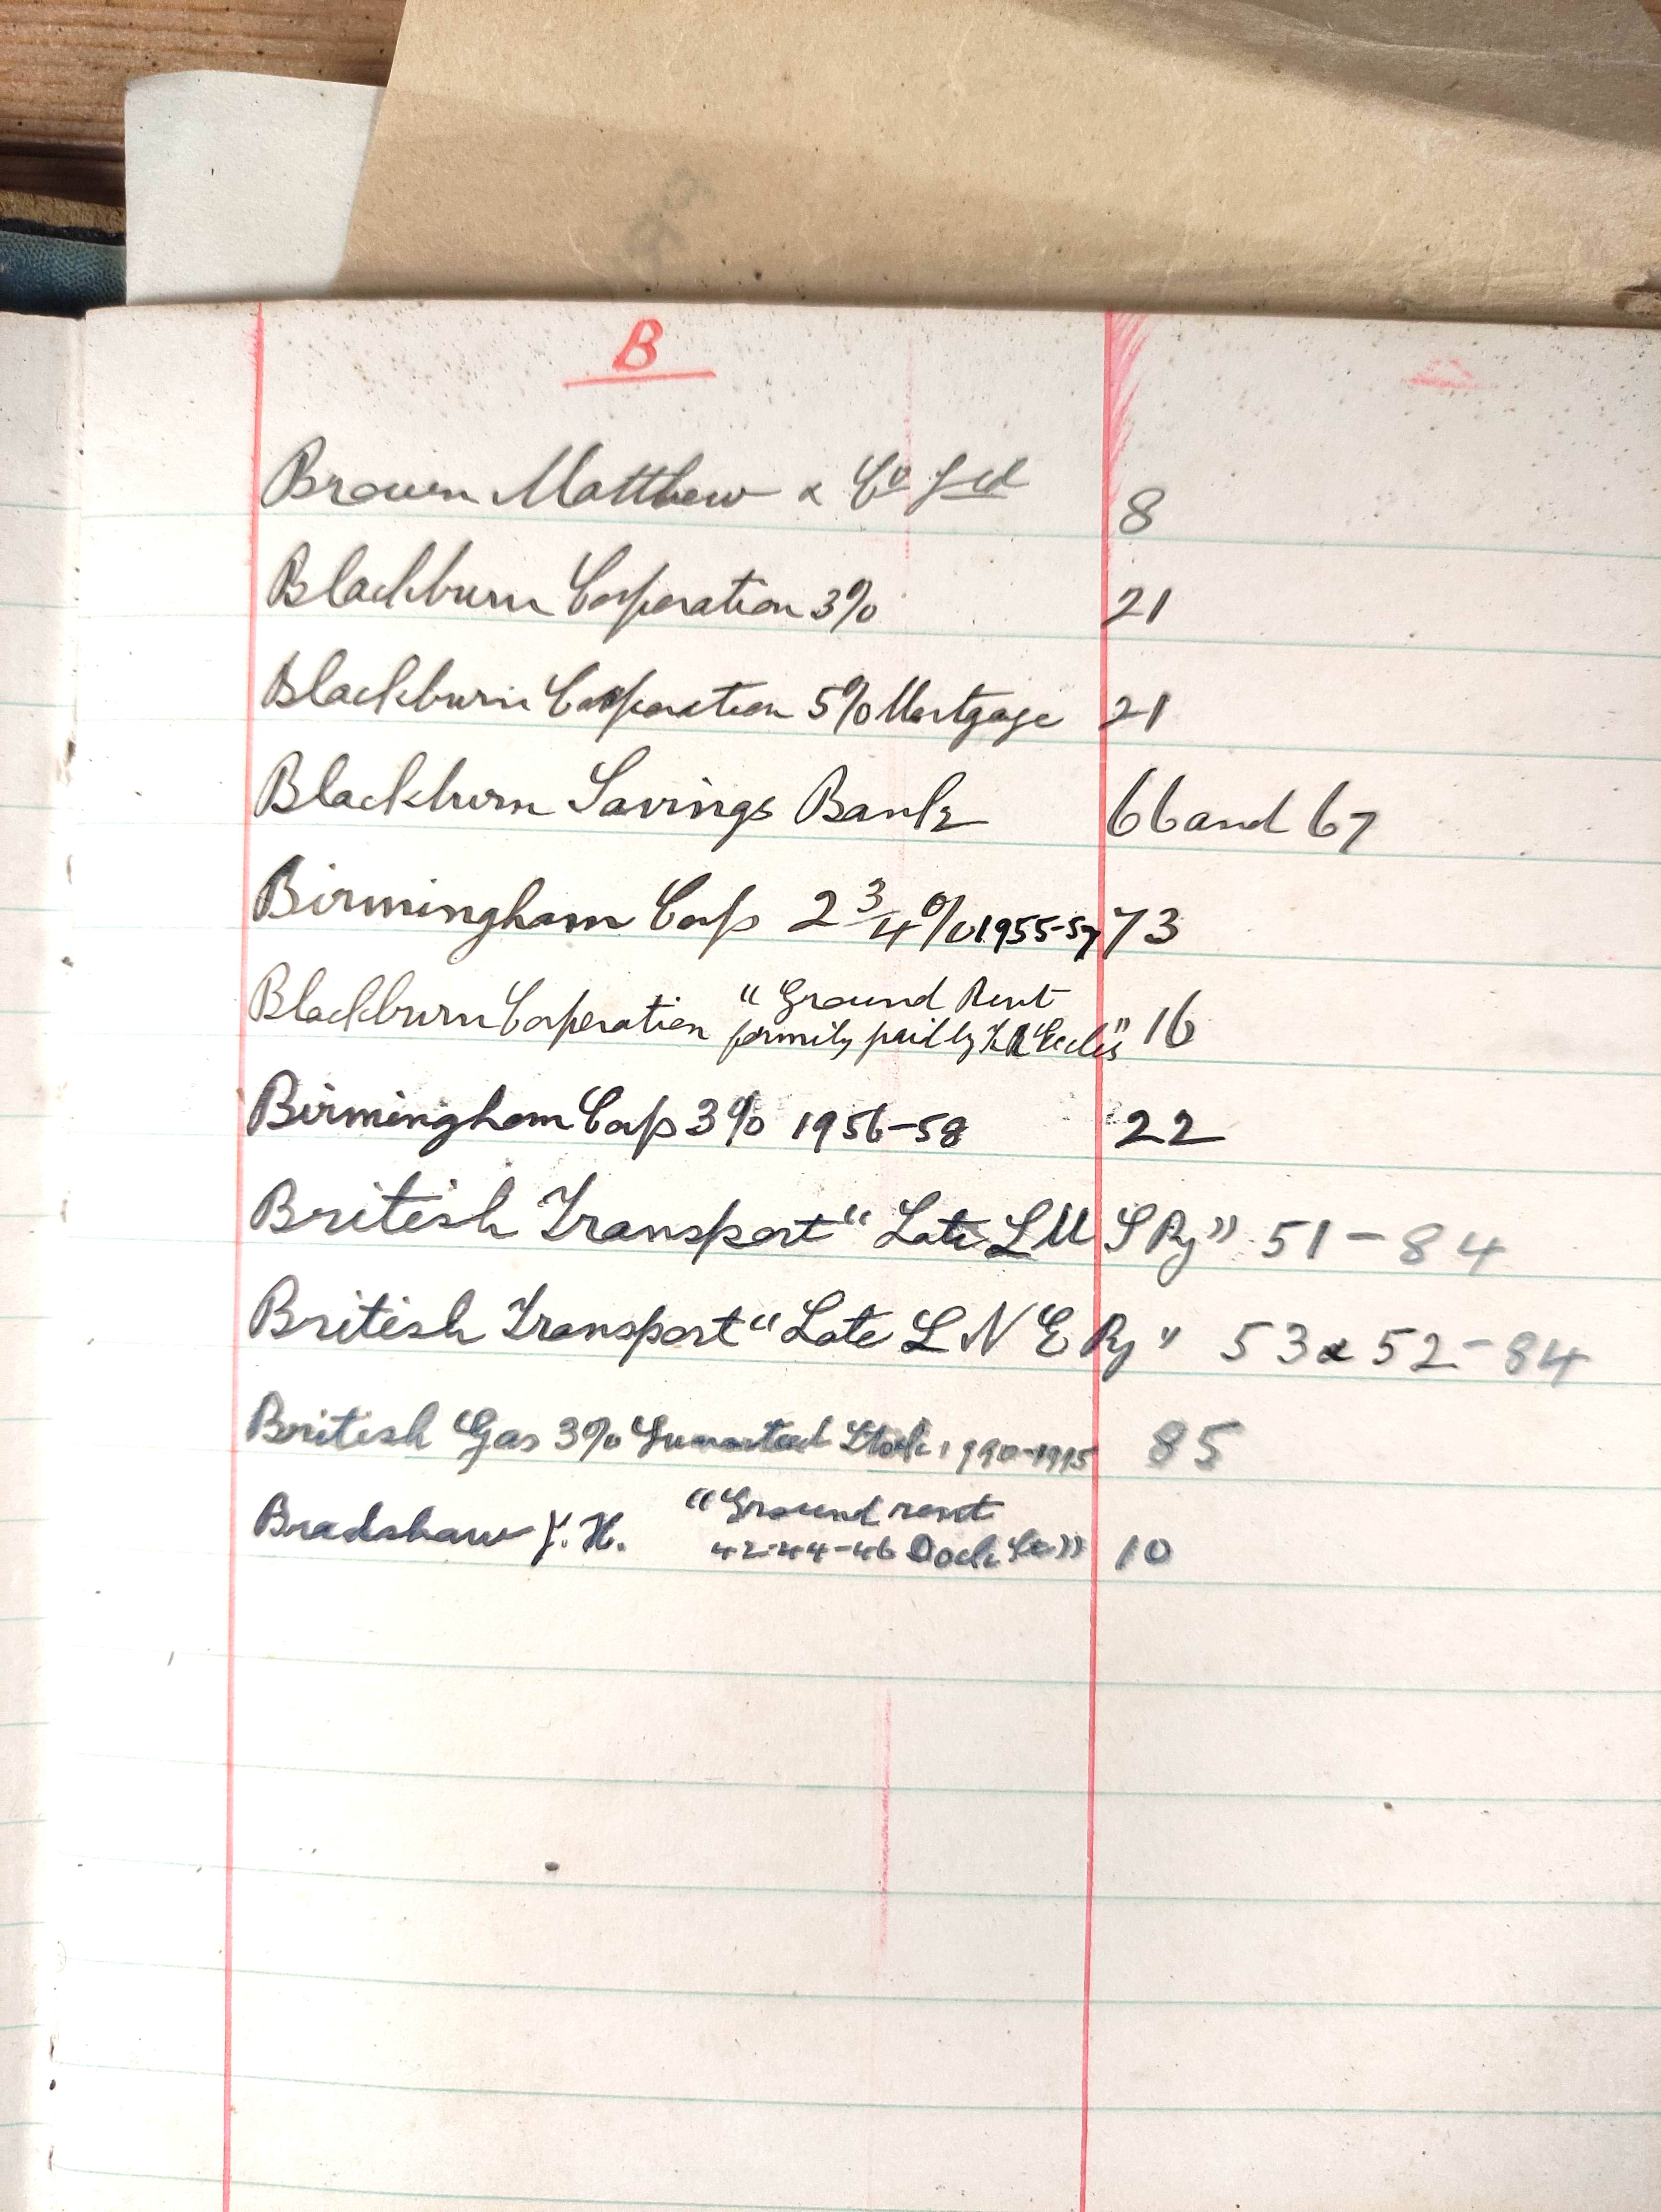 B
Brown Matthew & Co Ltd 8
Blackburn Corporation 3% 21
Blackburn Corporation 5% Mortgage 21
Blackburn Savings Bank 66 and 67
Birmingham Corp 2 3/4 % 1955-57 73
Blackburn Corporation "Ground Rent
formily paid by Eccles" 16
Birmingham Corp 3% 1956-58 22
British Transport "Late L M S Ry" 51-84
British Transport "Late L N E Ry" 53 & 52-84
British Gas 3% Stock 1990-1995 85
Bradshaw J. H. "Ground rent
42-44-46 Dock " 10